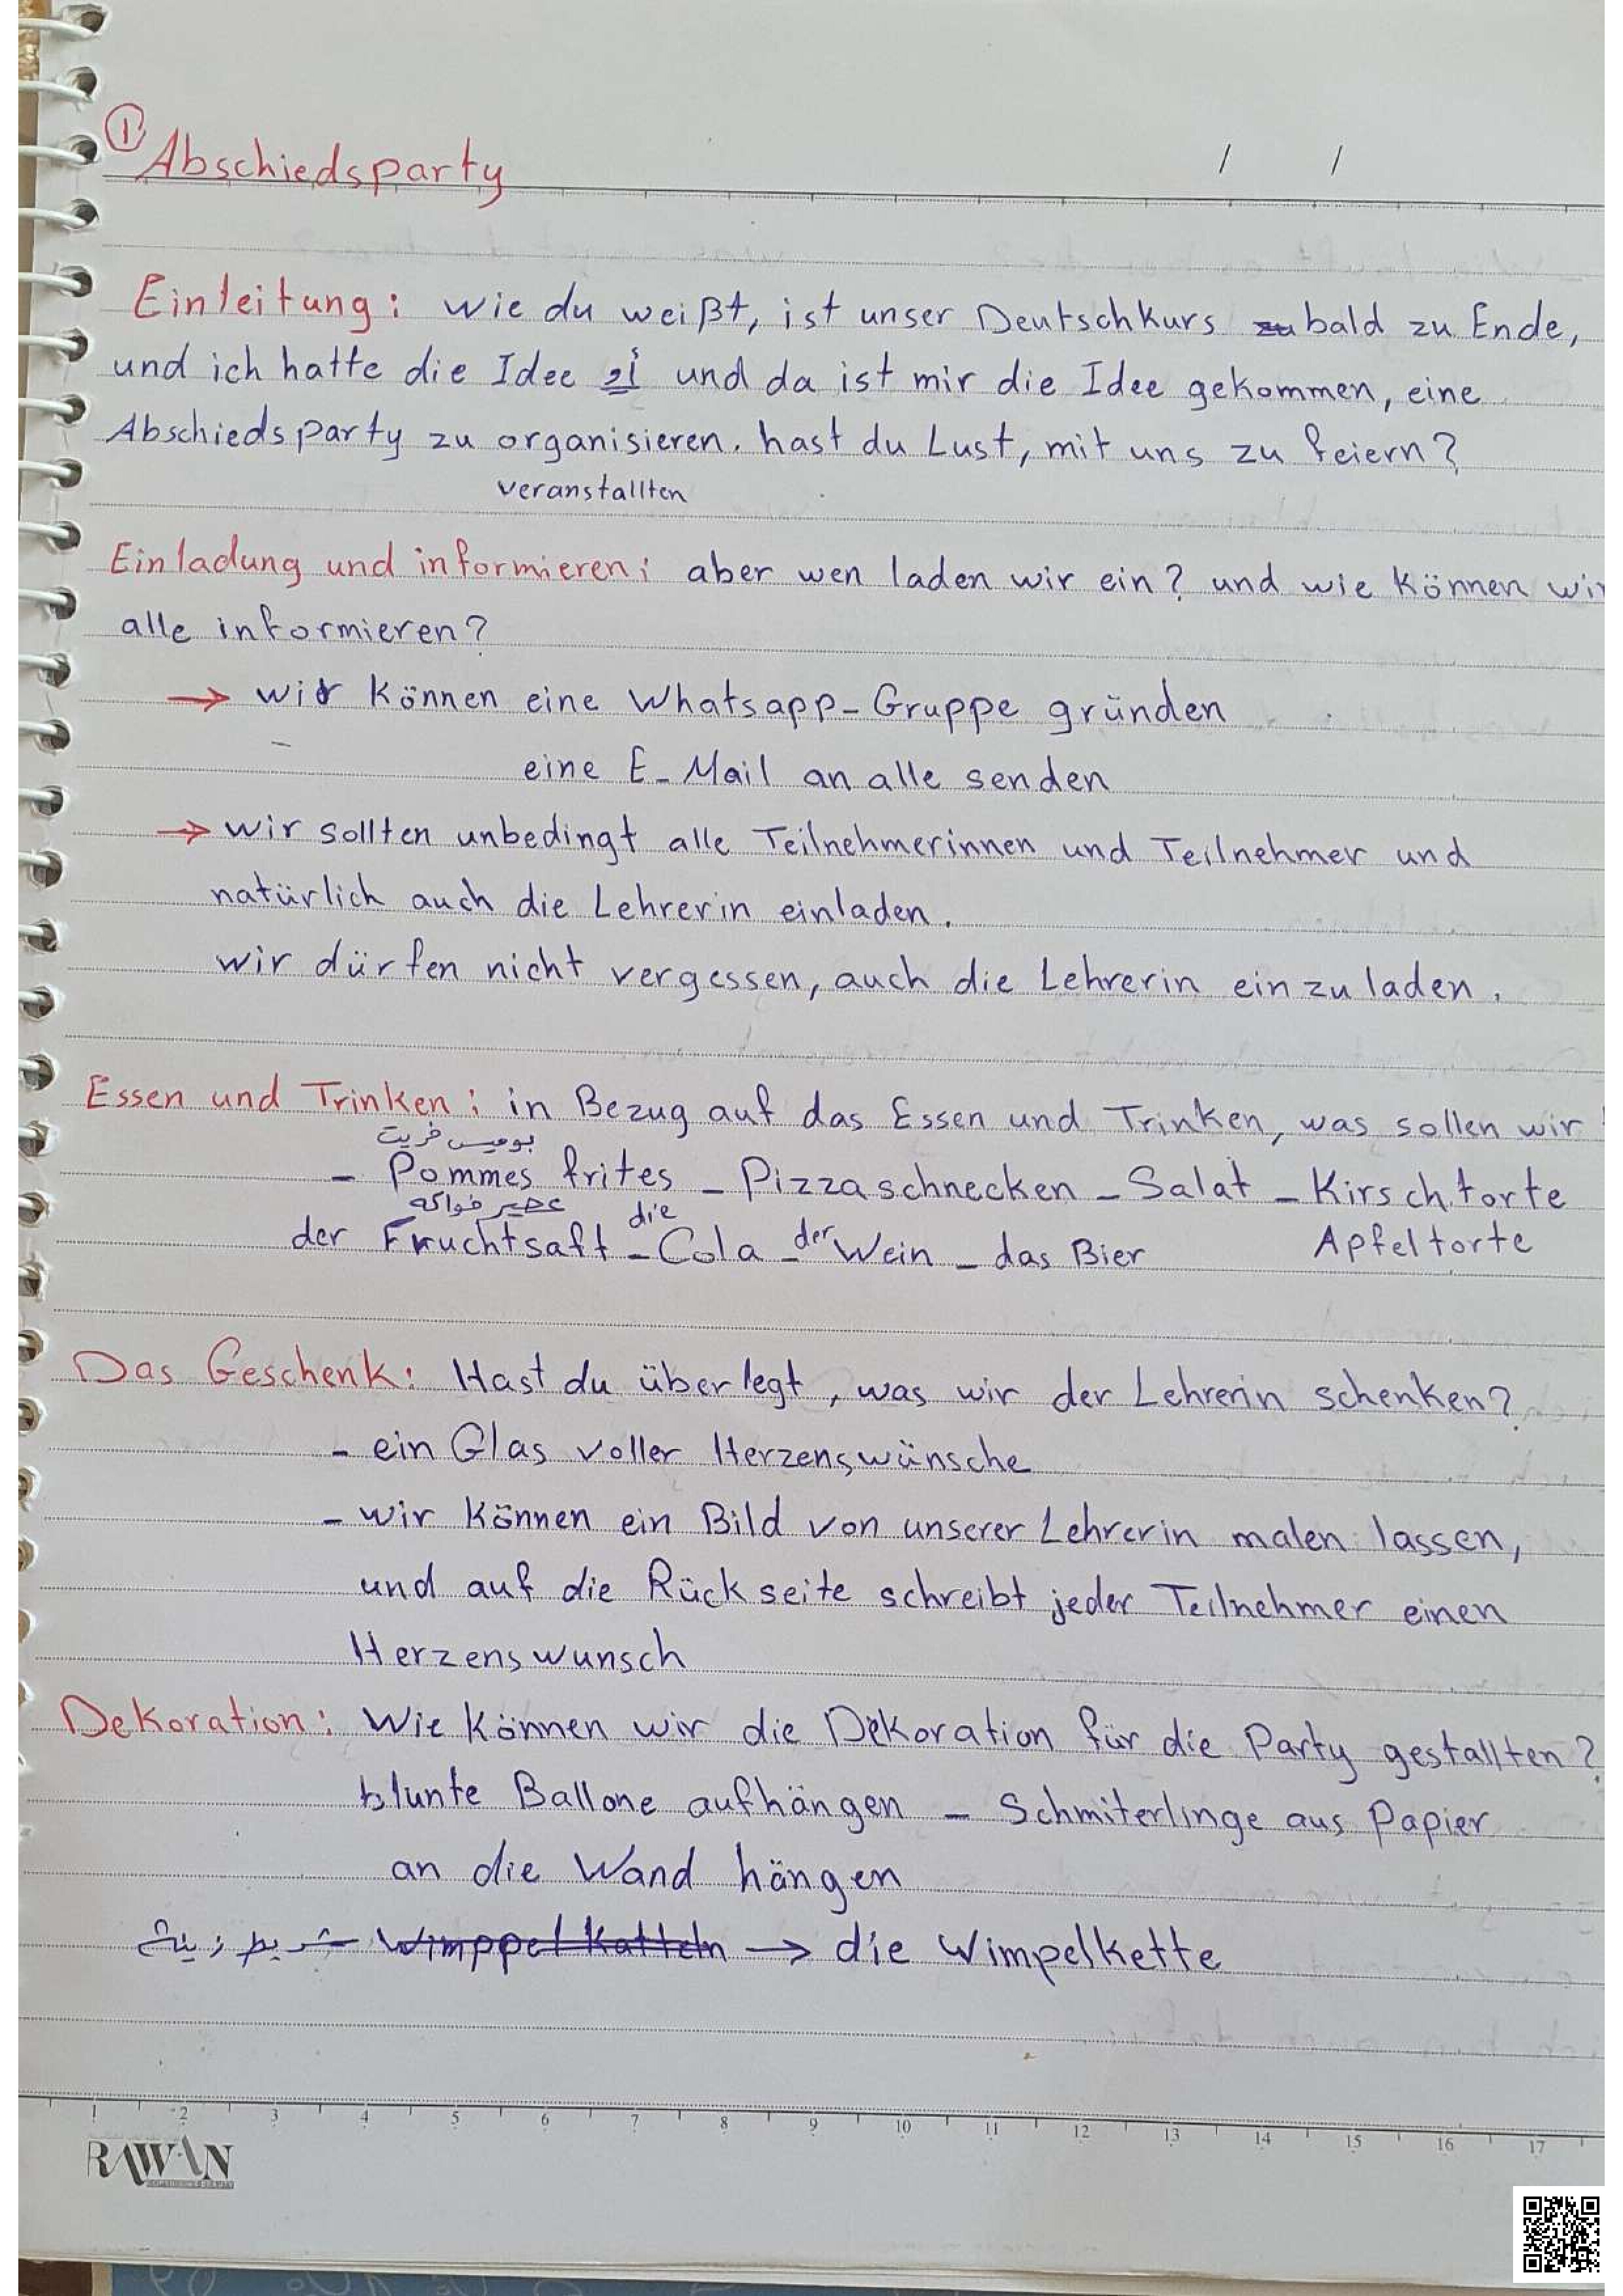 ① Abschiedsparty / /
Einleitung: wie du weißt, ist unser Deutschkurs bald zu Ende,
und ich hatte die Idee أو und da ist mir die Idee gekommen, eine
Abschiedsparty zu organisieren. hast du Lust, mit uns zu feiern?
veranstallten
Einladung und informieren: aber wen laden wir ein? und wie können wir
alle informieren?
→ wir können eine Whatsapp-Gruppe gründen
eine E-Mail an alle senden
→ wir sollten unbedingt alle Teilnehmerinnen und Teilnehmer und
natürlich auch die Lehrerin einladen.
wir dürfen nicht vergessen, auch die Lehrerin einzuladen.
Essen und Trinken: in Bezug auf das Essen und Trinken, was sollen wir
بوميس فريت
- Pommes frites - Pizzaschnecken - Salat - Kirschtorte
عصير فواكه die
der Fruchtsaft - Cola - der Wein - das Bier Apfeltorte
Das Geschenk: Hast du überlegt, was wir der Lehrerin schenken?
- ein Glas voller Herzenswünsche
- wir können ein Bild von unserer Lehrerin malen lassen,
und auf die Rückseite schreibt jeder Teilnehmer einen
Herzenswunsch
Dekoration: Wie können wir die Dekoration für die Party gestallten?
blunte Ballone aufhängen - Schmiterlinge aus Papier
an die Wand hängen
شريط زينة Wimppel Katteln → die Wimpelkette
1 2 3 4 5 6 7 8 9 10 11 12 13 14 15 16 17
RAWAN